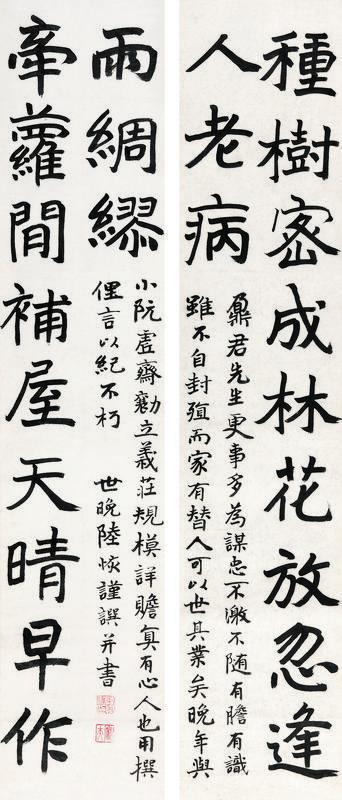 種樹密成林花放忽逢
人老病
鼐君先生更事多為謀忠不激不随有膽有識
雖不自封殖而家有替人可以世其業矣晚年與
牽蘿閒補屋天晴早作
雨綢繆
小阮虛齋立義莊規模詳贍真有心人也用撰
俚言以紀不朽 世晚陸恢謹譔并書